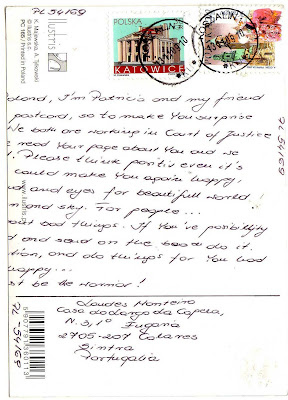 PL 54169
K. Majewska, A. Tełkowski
© ilustris s.c.
PC 165 / Printed in Poland
ilustris
POLSKA
KATOWICE
PL 54169
oland, I'm Patricia and my friend
postcard, so to make You surprise
We both are working in Court of Justice
I read Your page about You and we
. Please think positiv even it's
could make You again happy,
and eyes for beautifull world!
and sky. For people...
out bad things. If You've posibility
and send on the boat do it.
tion, and do things for You had
happy...
st be the hormor!
www.ilustris
PL-54169
5907791366311
Lourdes Monteiro
Casa do Largo da Capela,
N. 3, 1º Fugana
2705-207 Colares
Sintra
Portugalia